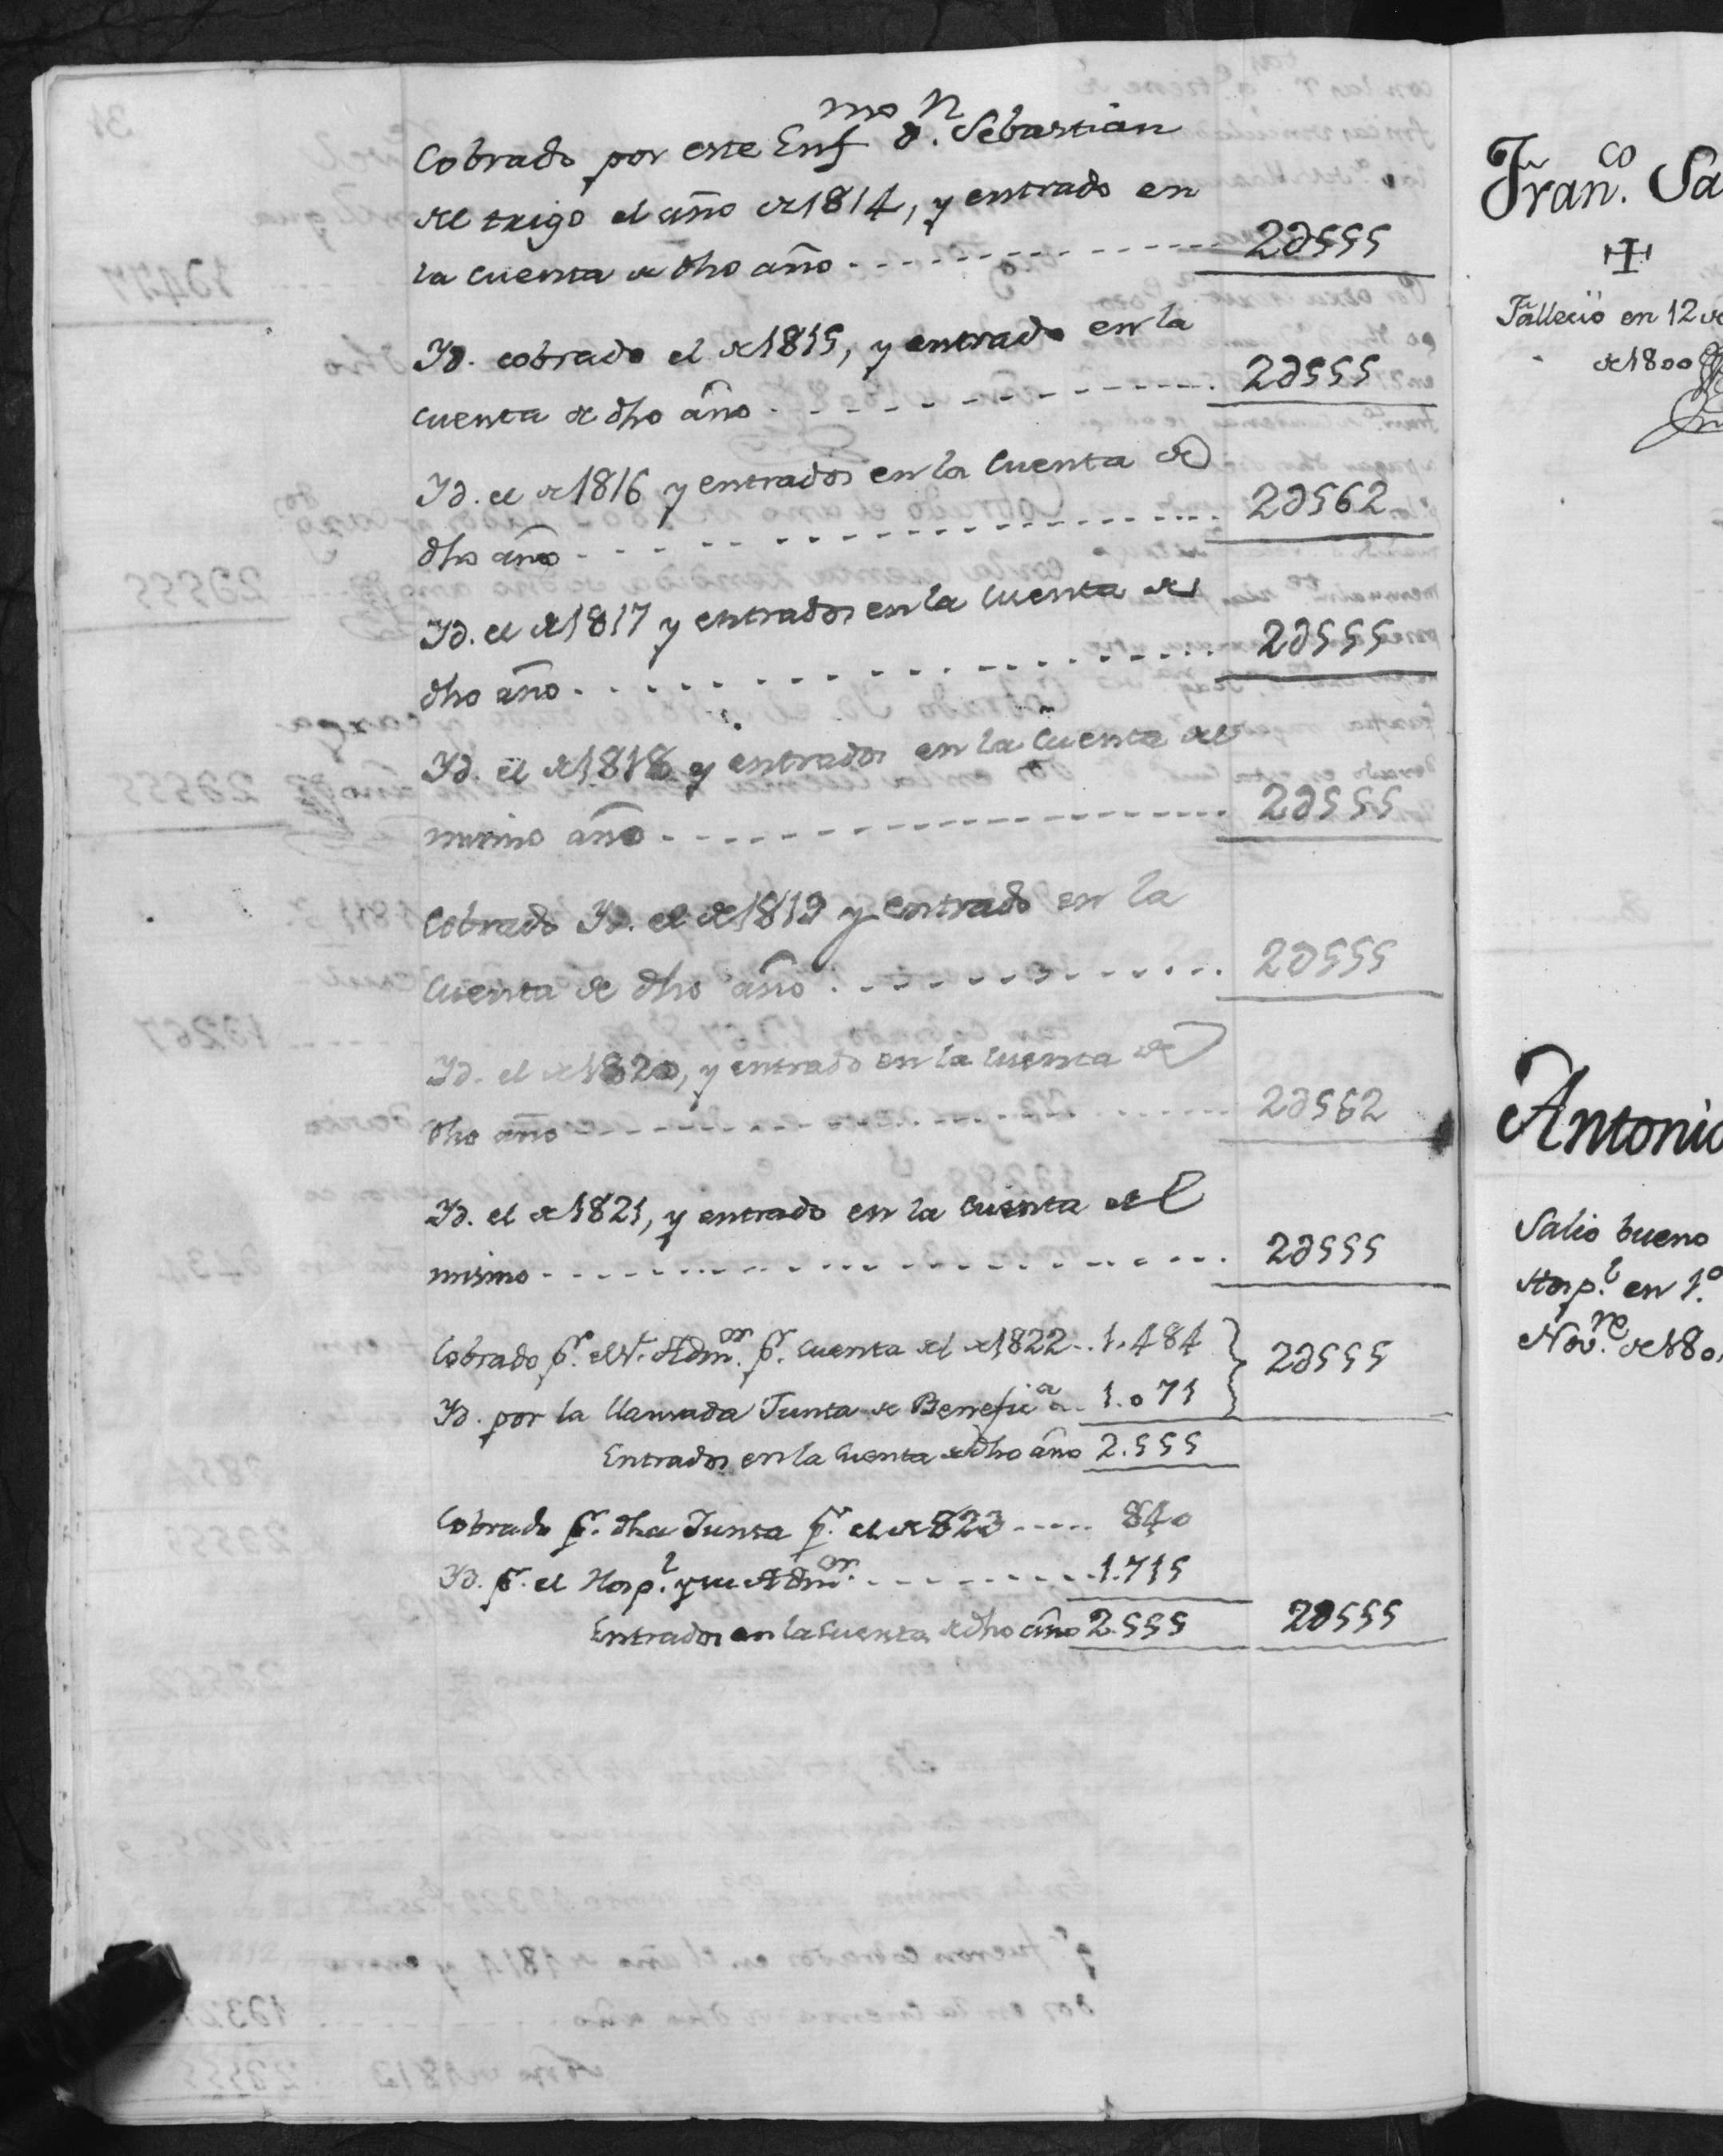 Cobrado por este Enf.mo D.n Sebastian
del trigo el año de 1814, y entrado en
la cuenta de dho año - - - - 2∂555
Yd. cobrado el de 1815, y entrado en la
cuenta de dho año - - - - 2∂555
Yd. el de 1816 y entrados en la cuenta de
dho año - - - - 2∂562
Yd. el de 1817 y entrados en la cuenta de
dho año - - - - 2∂555
Yd. el de 1818 y entrados en la cuenta del
mismo año - - - - 2∂555
Cobrado Yd. el de 1819 y entrado en la
cuenta de dho año - - - - 2∂555
Yd. el de 1820, y entrado en la cuenta de
dho año - - - - 2∂562
Yd. el de 1821, y entrado en la cuenta del
mismo - - - - 2∂555
Cobrado p.r el Adm.or p.r cuenta del de 1822 - - 1.484 } 2∂555
Yd. por la llamada Junta de Benefic.a - - 1.071
Entrados en la cuenta de dho año 2.555
Cobrado p.r dha Junta p.r el de 823 - - - - 840
Yd. p.r el Hosp.l y su Adm.or - - - - 1.715
Entrados en la cuenta de dho año 2.555 2∂555
Fran.co Sa
Fallecio en 12 de
de 1800
Antonio
Salio bueno
Hosp.l en 1.o
Nov.re de 180